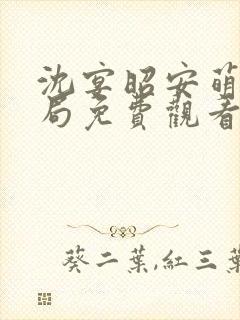 沈宴昭安萌
局免費觀看
葵二葉,紅三葉